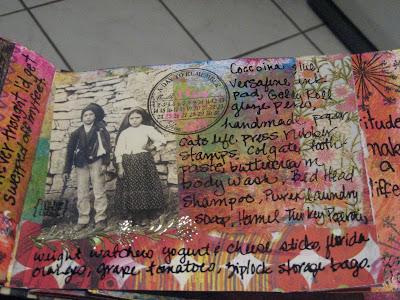 never thought i'd get
swept off my feet
A DAY TO REMEMBER
Coccoina glue
versafine ink
Pad, Gelly Roll
glaze pens,
handmade paper
Cats life press rubber
Stamps. Colgate tooth-
paste, buttercream
body wash. Bed Head
Shampoo, Purex laundry
soap, Hormel Turkey Peperoni,
weight watchers, yogurt & cheese sticks, florida
oranges, grape tomatoes, ziplock storage bags.
itudes
make
a
differ